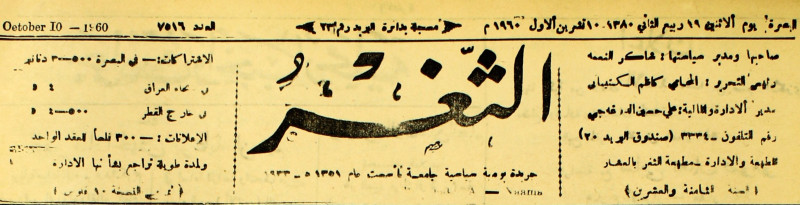 البصرة؛ يوم الاثنين ١٩ ربيع الثاني ١٣٨٠ - ١٠ تشرين الاول ١٩٦٠ م
مسجلة بدائرة البريد رقم ٢٣
العدد ٧٥١٦
October 10 — 1960
صاحبها ومدير سياستها: شاكر النعمه
رئيس التحرير: المحامي كاظم
مدير الادارة والمالية: علي حسين
رقم التلفون - ٣٣٣٤ (صندوق البريد ٢٠)
المطبعة والادارة - مطبعة الثغر بالعشار
(السنة الثامنة والعشرين)
الثغر
جريدة يومية سياسية جامعة تأسست عام ١٣٥١ ه - ١٩٣٣
Naama
الاشتراكات: — في البصرة ٥٠٠-٣ دنانير
في انحاء العراق ٤
في خارج القطر ٥٠٠-٤
الاعلانات: — ٣٠٠ فلساً للعقد الواحد
ولمدة طويلة تراجع بشأنها الادارة
(ثمن النسخة ١٠ فلوس)